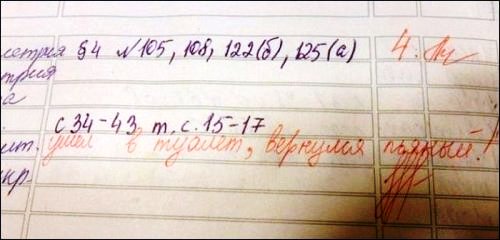 метрия §4 №105, 108, 122(б), 125(а) 4.
трия
а
с 34-43 т. с. 15-17
лит. ушел в туалет, вернулся пьяный!
укр.